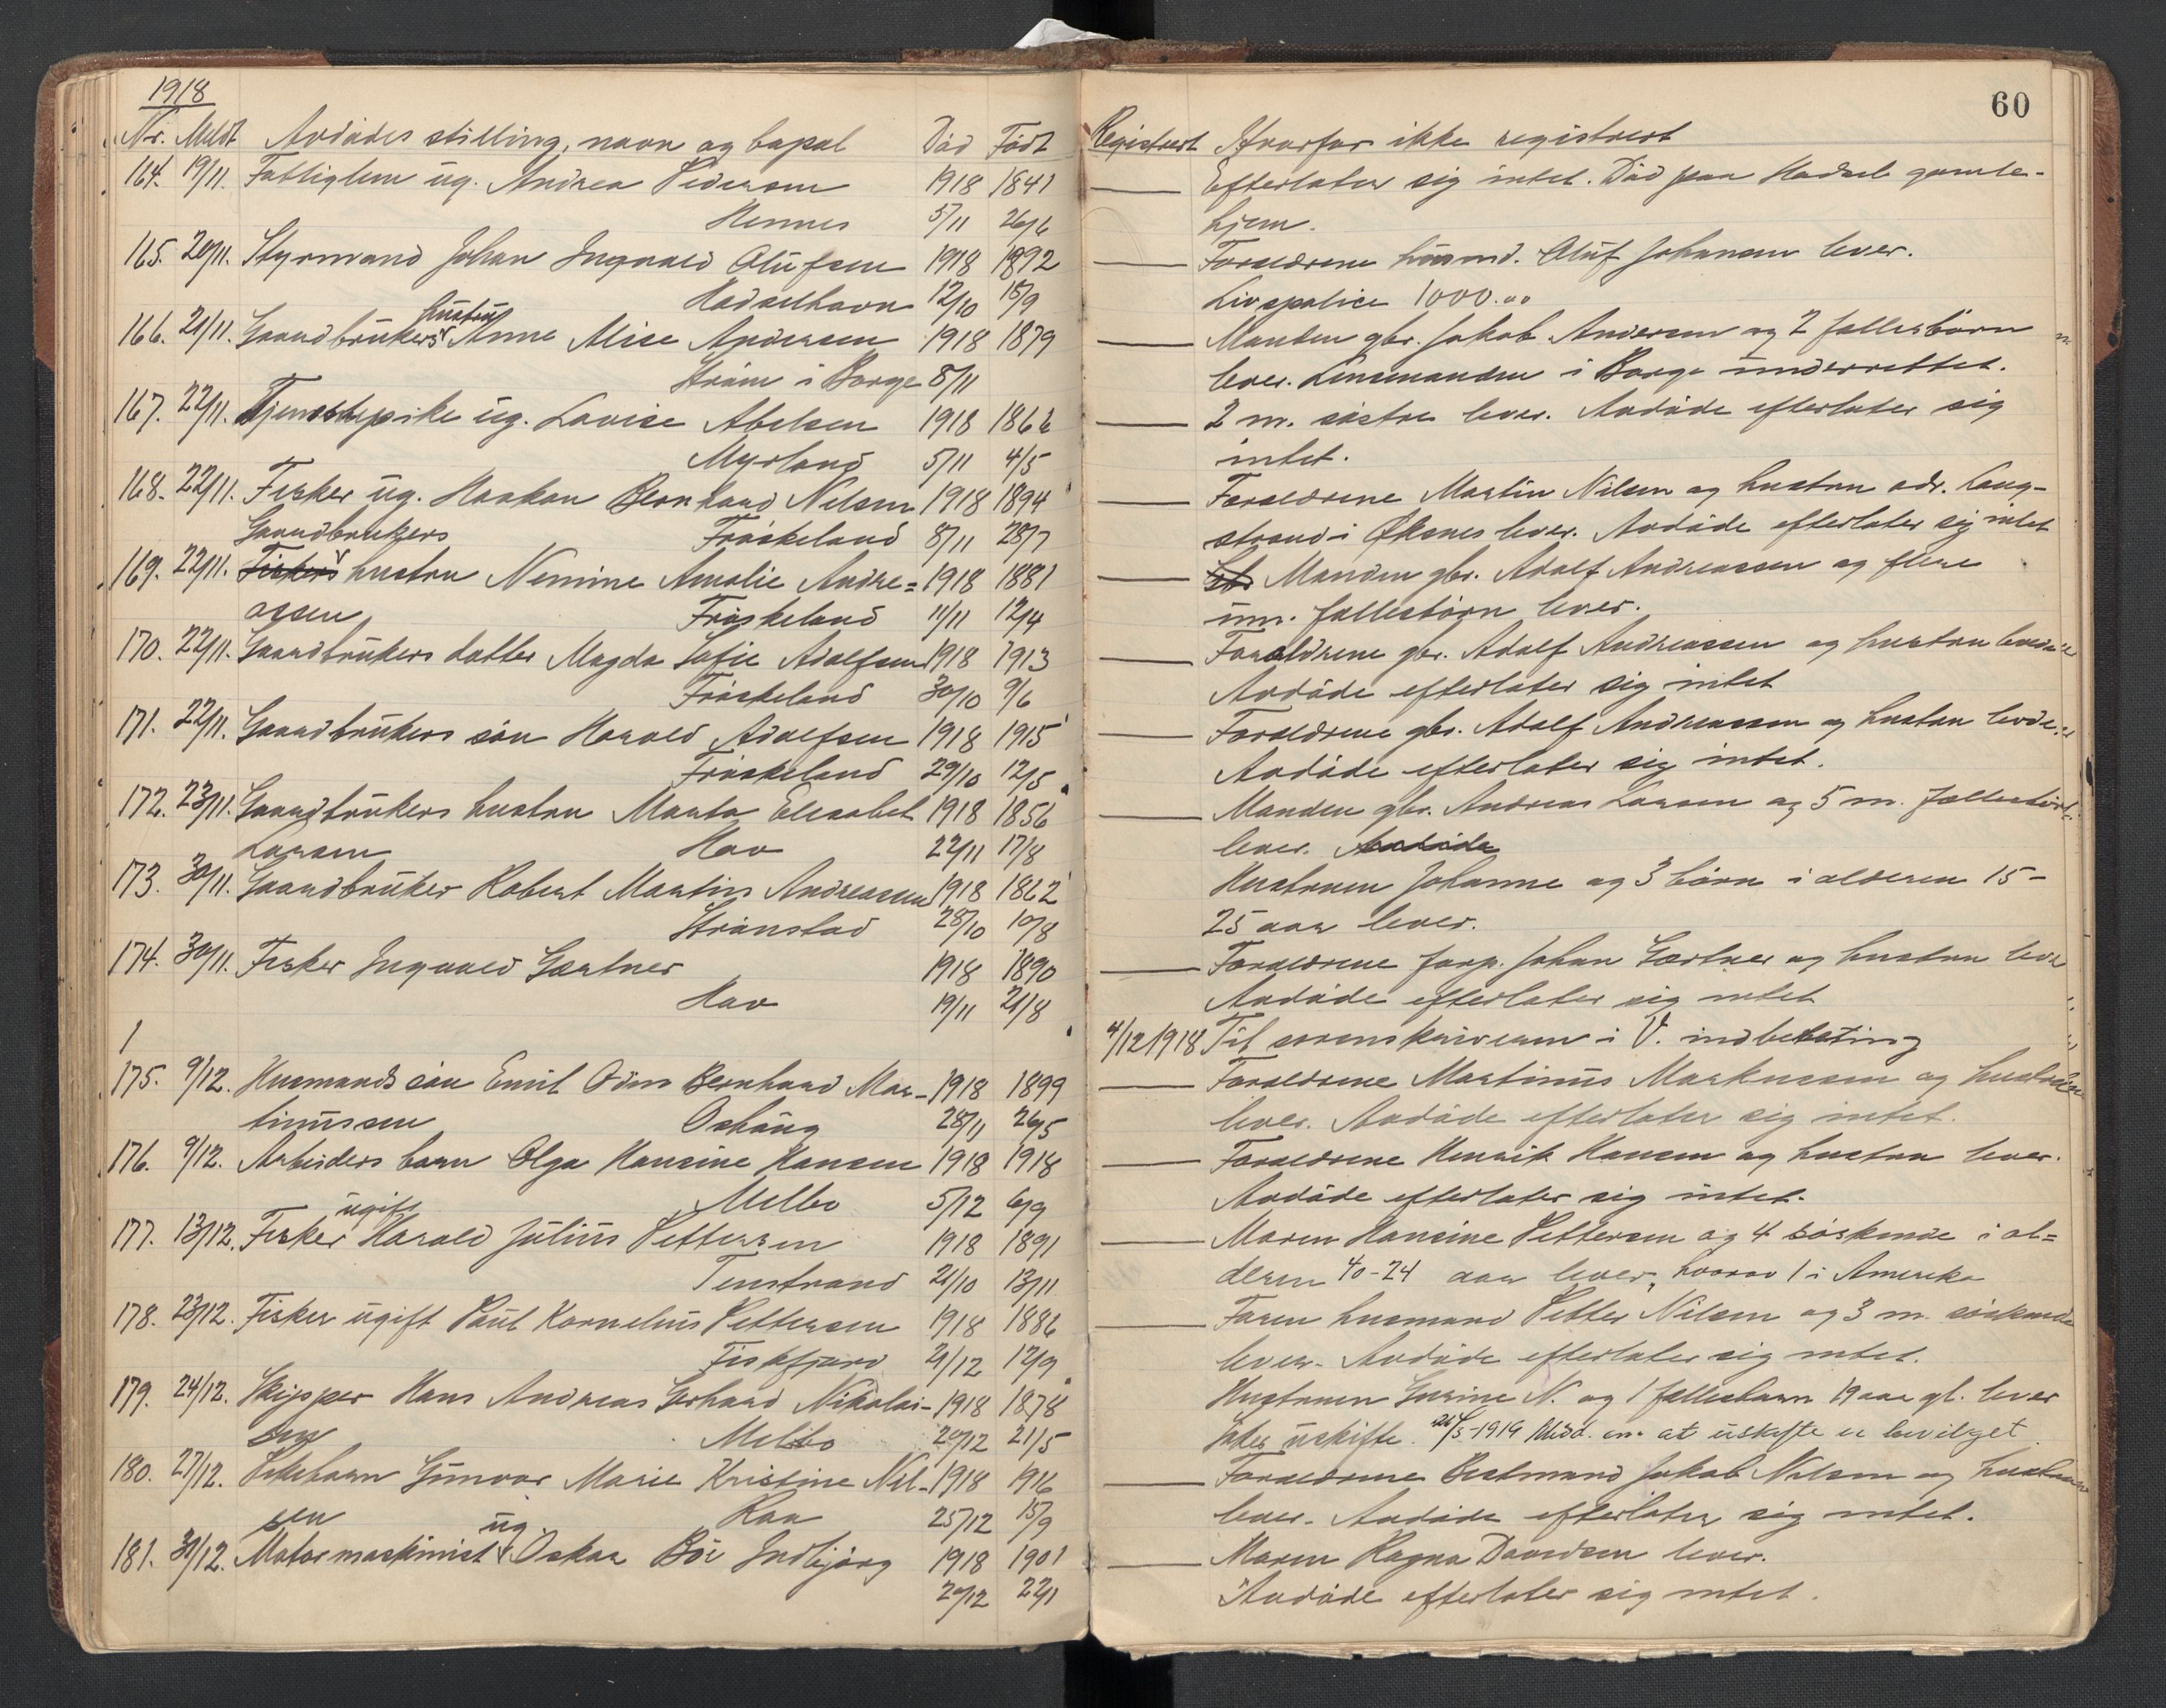 1918
Nr. Meldt Avdødes stilling, navn og bopæl Død Født
164. 19/11. Fattiglem ug. Andrea Pedersen 1918 1841
Hennes 5/11 26/6
165. 20/11. Styrmand Johan Ingvald Olufsen 1918 1892
Hadselhavn 12/10 15/9
hustru
166. 21/11. Gaardbrukers Anne Alise Andersen 1918 1879
Strøm i Borge 8/11
167. 22/11. Tjenestepike ug. Lovise Abelsen 1918 1862
Myrland 5/11 4/5
168. 22/11. Fisker ug. Haakon Bernhard Nilsen 1918 1894
Gaardbrukers Frøskeland 8/11 28/7
169. 22/11. Fiskers hustru Nemine Amalie Andre= 1918 1881
assen Frøskeland 11/11 12/4
170. 22/11. Gaardbrukers datter Magda Sofie Adolfsen 1918 1913
Frøskeland 30/10 9/6
171. 22/11. Gaardbrukers søn Harald Adolfsen 1918 1915
Frøskeland 29/10 12/5
172. 23/11. Gaardbrukers hustru Marta Elisabet 1918 1856
Larsen Hav 22/11 17/8
173. 30/11. Gaardbruker Robert Martin Andreassen 1918 1862
Strønstad 28/10 10/8
174. 30/11. Fisker Ingvald Gærtner 1918 1890
Hav 19/11 21/8
1
175. 9/12. Husmands søn Emil Odin Bernhard Mar- 1918 1899
tinussen Oshaug 28/11 26/5
176. 9/12. Arbeiders barn Olga Hansine Hansen 1918 1918
Melbo 5/12 6/9
ugift
177. 13/12. Fisker Harald Julius Pettersen 1918 1891
Tenstrand 21/10 13/11
178. 23/12. Fisker ugift Paul Kornelius Pettersen 1918 1886
Fiskfjord 21/12 12/9
179. 24/12. Skipper Hans Andreas Gerhard Nikolai- 1918 1878
sen Melbo 20/12 21/5
180. 27/12. Pikebarn Gunvor Marie Kristine Nil- 1918 1916
sen Raa 25/12 15/9
ug.
181. 31/12. Motormaskinist Oskar Bøe Indbjørg 1918 1901
20/12 22/1
60
Registrert Hvorfor ikke registrert
Efterlater sig intet. Død paa Hadsel gamle-
hjem.
Forældrene husmd. Oluf Johansen lever.
Livspolice 1000.00
Manden gbr. Jakob Andersen og 2 fællesbørn
lever. Lensmanden i Borge underrettet.
2 m. søstre lever. Avdøde efterlater sig
intet.
Forældrene Martin Nilsen og hustru adr. Lang-
strand i Øksnes lever. Avdøde efterlater sig intet
Manden gbr. Adolf Andreassen og flere
um. fællesbørn lever.
Forældrene gbr. Adolf Andreassen og hustru
Avdøde efterlater sig intet
Forældrene gbr. Adolf Andreassen og hustru
Avdøde efterlater sig intet.
Manden gbr. Andreas Larsen og 5 m. fællesbørn
lever. Avdøde
Hustruen Johanne og 3 børn i alderen 15-
25 aar lever.
Forældrene forp. Johan Gærtner og hustru lever
Avdøde efterlater sig intet
4/12 1918 Til sorenskriveren i V. indberetning
Forældrene Martinus Markussen og hustru
lever. Avdøde efterlater sig intet.
Forældrene Henrik Hansen og hustru lever.
Avdøde efterlater sig intet.
Moren Hansine Pettersen og 4 søskende i al=
deren 40-24 aar lever, hvorav 1 i Amerika
Faren husmand Petter Nilsen og 3 m. søskende
lever. Avdøde efterlater sig intet.
Hustruen Gurine N. og 1 fællesbarn 19 aar gl. lever
uskifte. 1919 Medd. om at uskifte er bevilget
Forældrene Bestmand Jakob Nilsen og hustru
lever. Avdøde efterlater sig intet.
Moren Ragna Davidsen lever.
Avdøde efterlater sig intet.